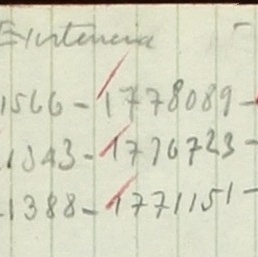 Existencia -
1566 - 1778089 -
1343 - 1776723 -
1388 - 1771151 -